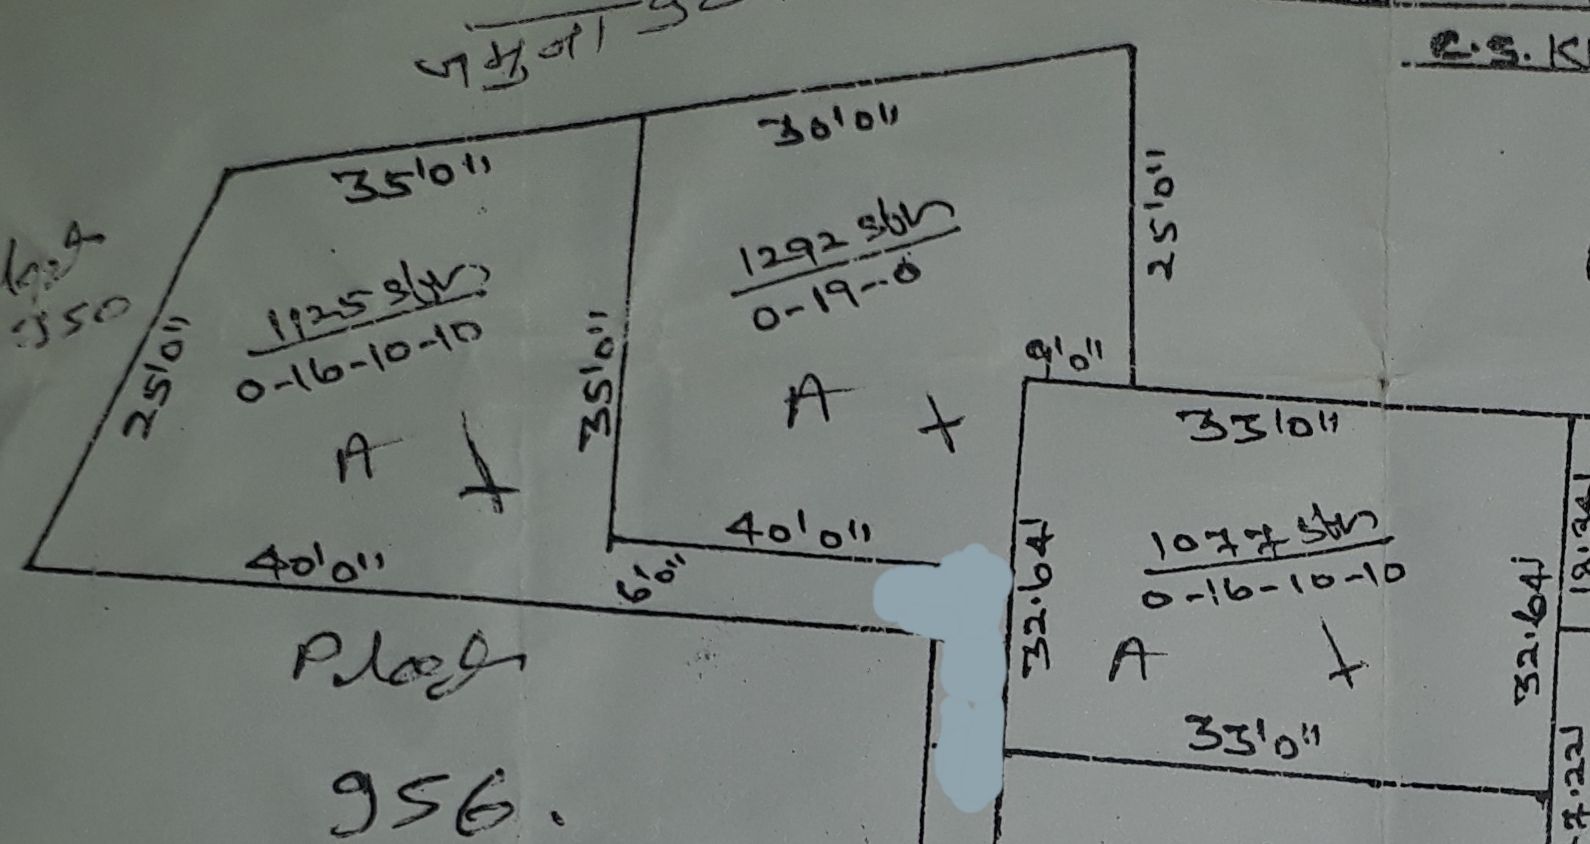 जमुना
C.S. K
35'0"
30'0"
25'0"
950
25'0"
1125 sft
0-16-10-10
A
35'0"
1292 sft
0-19-0
A
9'0"
33'0"
40'0"
6'0"
40'0"
32.64'
1077 sft
0-16-10-10
A
32.64'
33'0"
Plot
956.